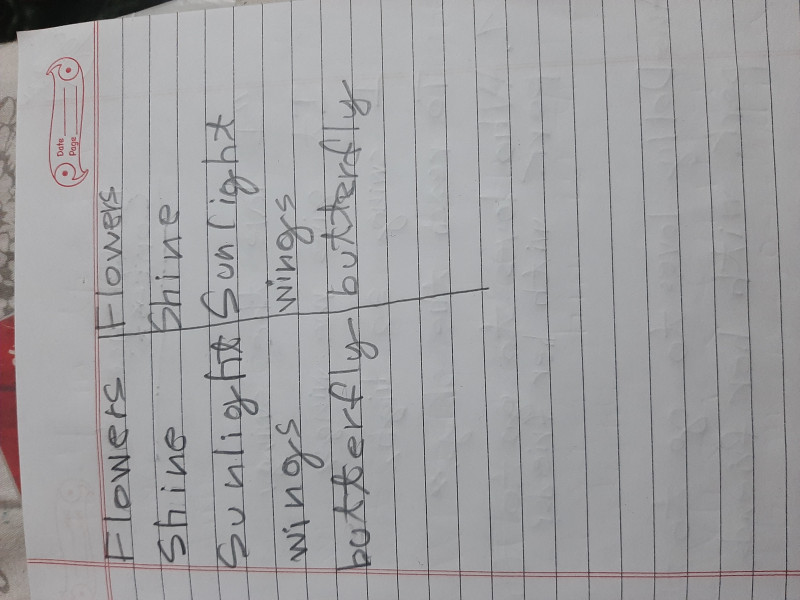 Date
Page
Flowers Flowers
Shine Shine
Sunlight Sunlight
wings wings
butterfly butterfly